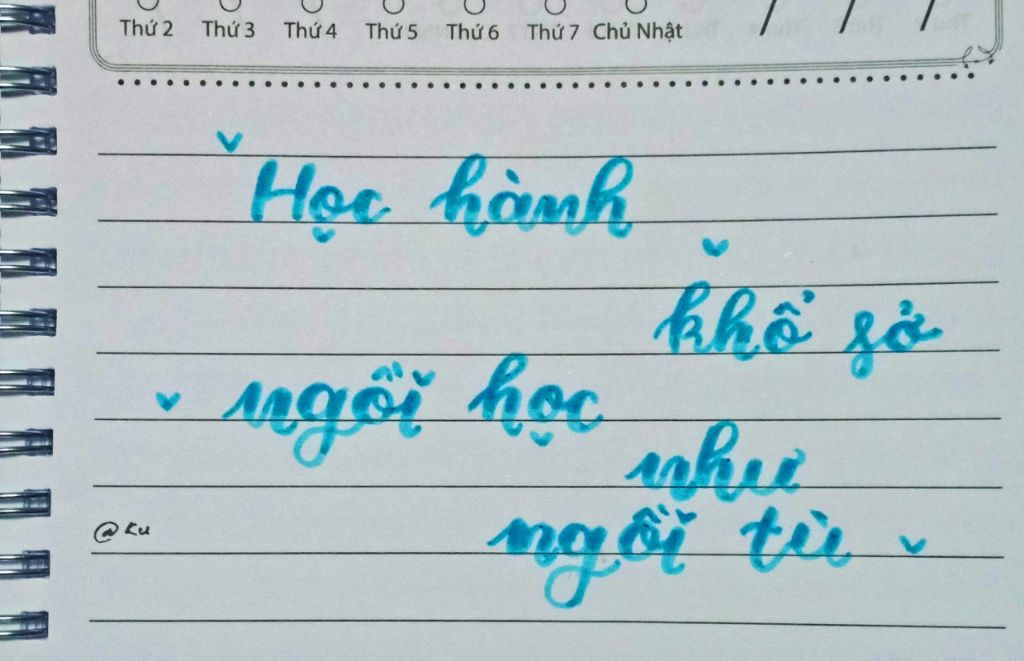 Thứ 2 Thứ 3 Thứ 4 Thứ 5 Thứ 6 Thứ 7 Chủ Nhật / / /
Học hành
khổ sở
ngồi học
như
ngồi tù
@Ku